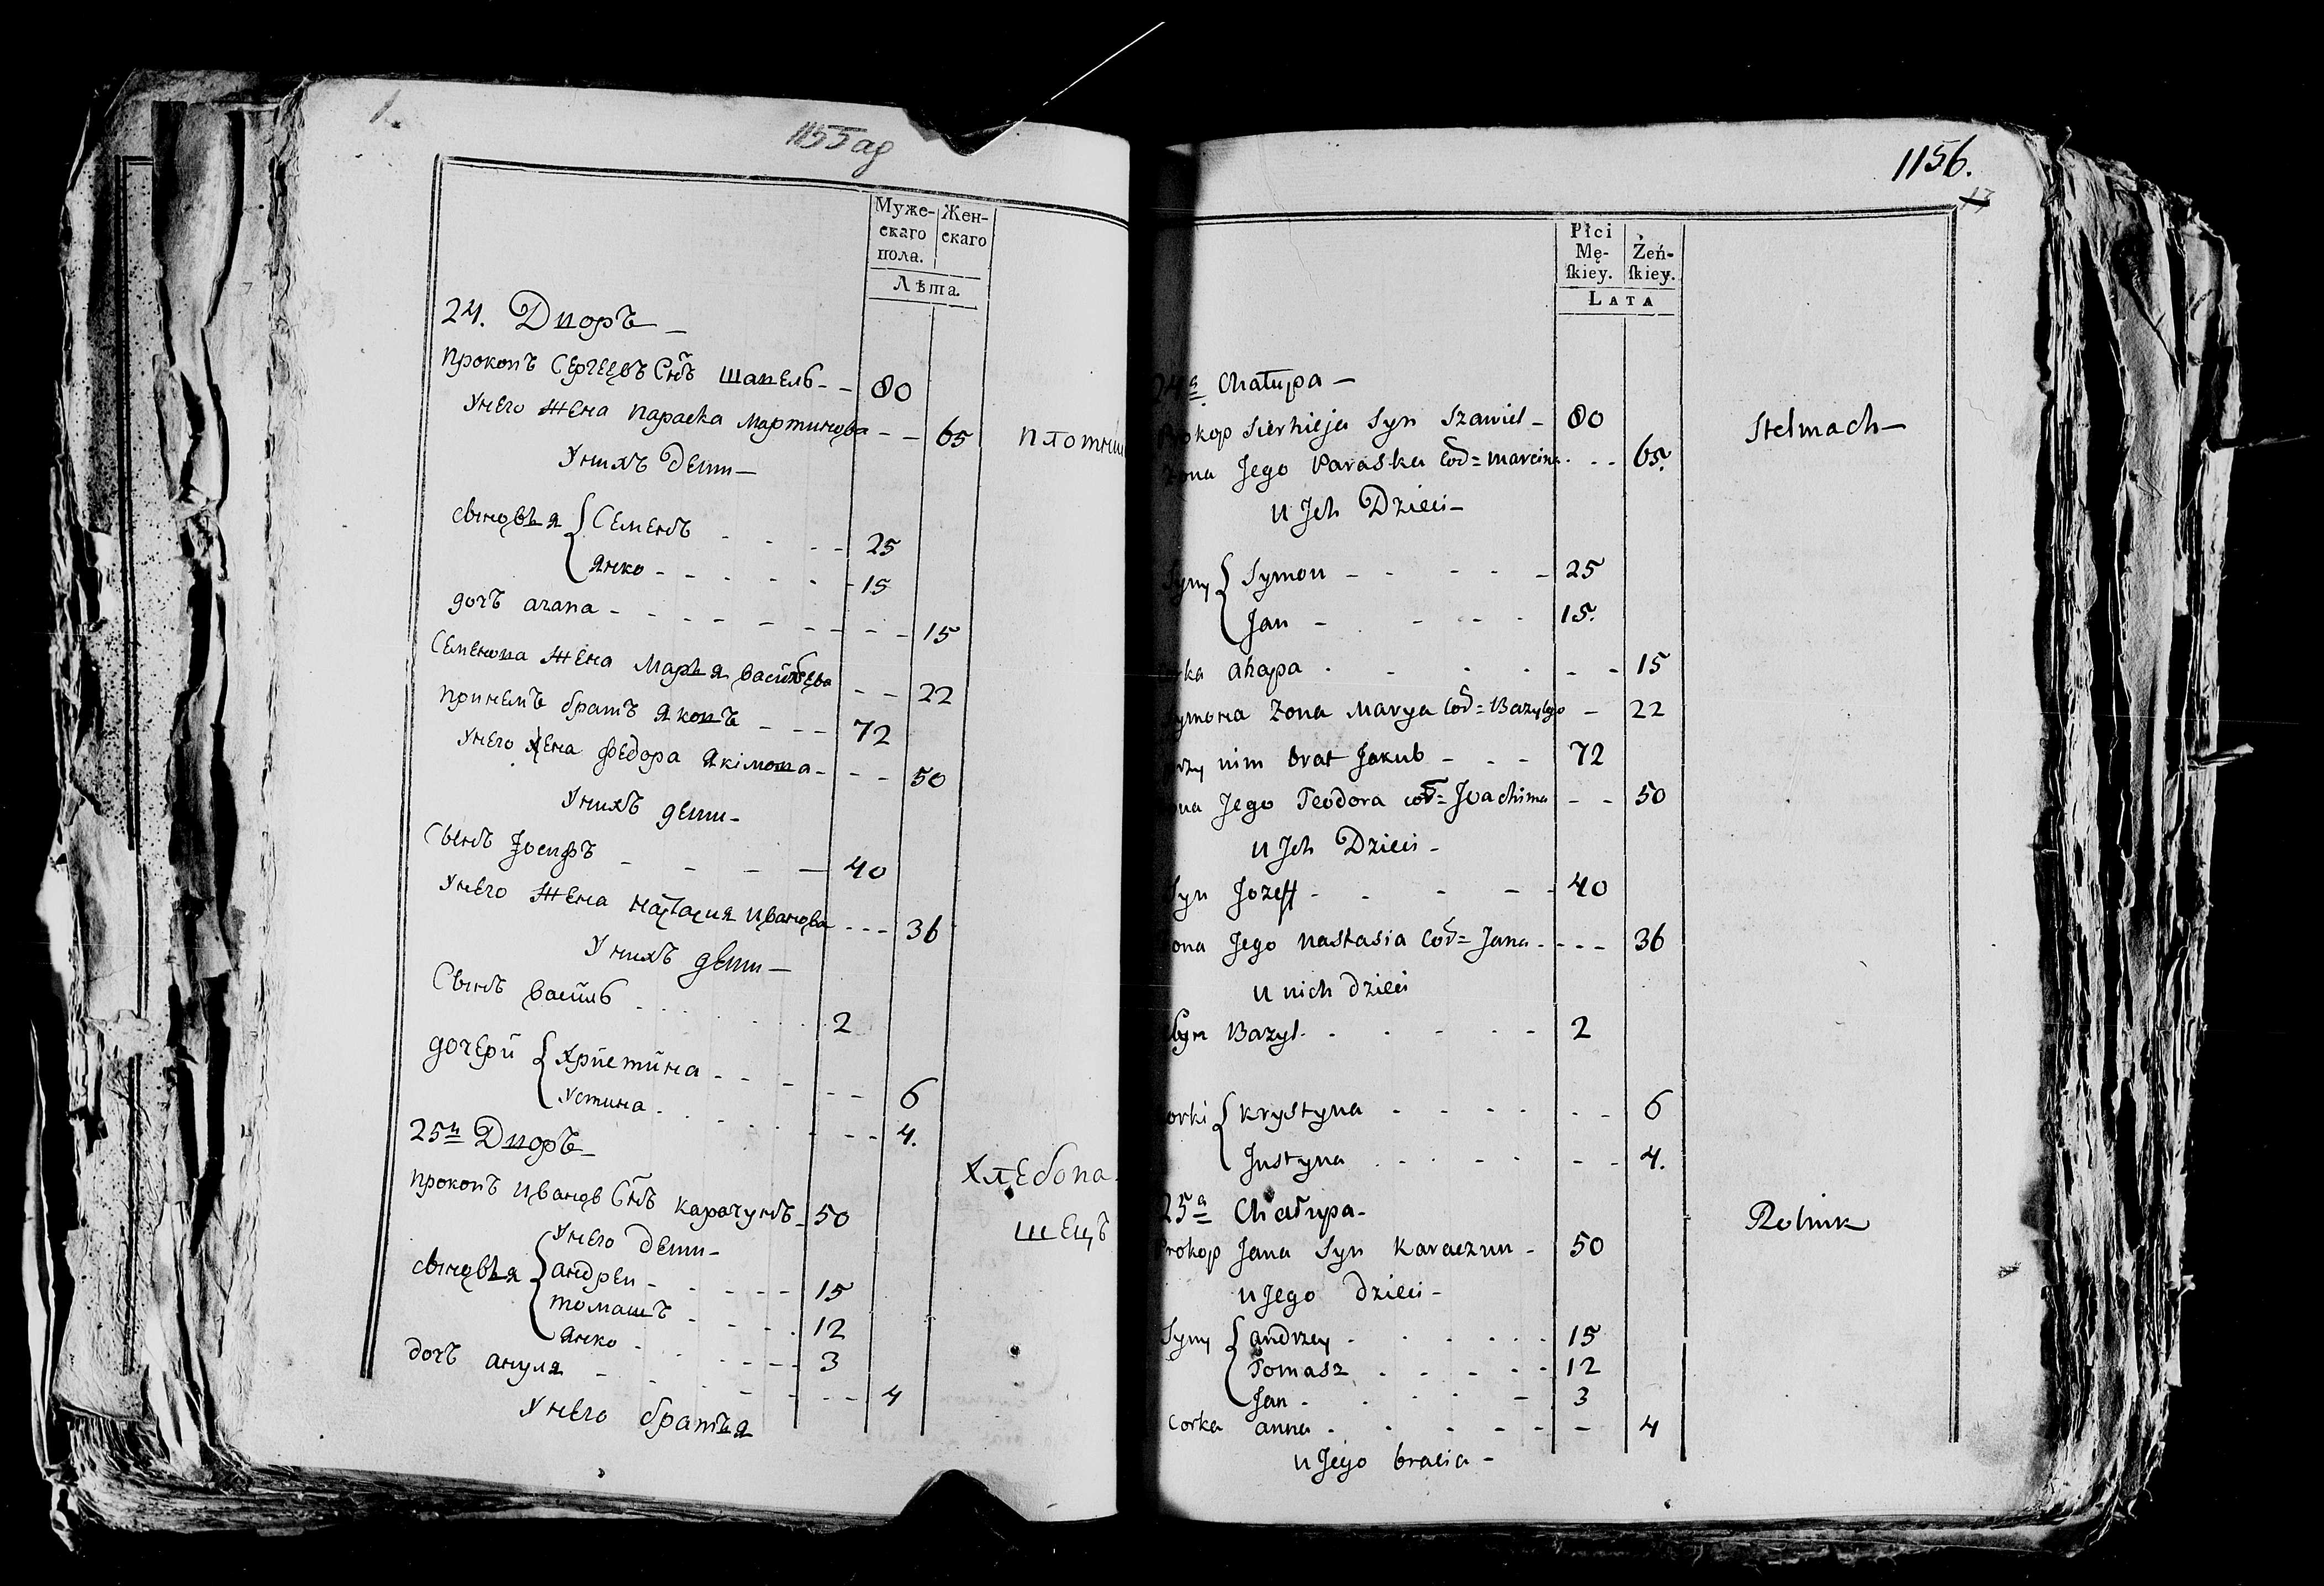 1155 ад
Муже-
скаго
пола.
Жен-
скаго
Лѣта.
24. Дворъ —
Прокопъ Сергеевъ Снъ Шавель - - 80
Унего жена Параска Мартинова - - 65 плотни
Унихъ дети —
сыновья { Семенъ - - - - 25
Янко - - - - - 15
дочъ агапа - - - - - - - 15
Семенова жена Марья Василева - - 22
принемъ братъ Яковъ - - - 72
Унего жена Федора Якімова - - - 50
Унихъ дети -
Сынъ Іосифъ - - - — 40
Унего жена Настасия Иванова - - - 36
Унихъ дети —
Сынъ Василь - - - - - 2
дочери { Христина - - - - - 6
Устина - - - - - 4.
25й Дворъ -
Прокопъ Ивановъ Снъ Карачунъ - 50 Хлебопа-
шецъ
Унего дети -
сыновья { андреи - - - - - 15
томашъ - - - - 12
Янко - - - - - 3
дочъ ануля - - - - - - - 4
Унего братья
1156.
17
Płci
Mę-
ſkiey.
Żeń-
ſkiey.
LATA
24a Chałupa —
Prokop Sierhieja Syn Szawiel - 80 Stelmach —
Zona Jego Paraska Cod= Marcina - - 65.
U Jch Dzieci -
Syny { Symon - - - - - 25
Jan - - - - 15.
Corka ahapa - - - - - - 15
Symona Zona Marya Cod= Bazylego - 22
Przy nim brat Jakub - - - 72
Zona Jego Teodora Cod= Joachima - - 50
U Jch Dzieci -
Syn Jozeff - - - - - 40
Zona Jego Nastasia Cod= Jana - - - - 36
U nich dzieci
Syn Bazyl - - - - - 2
Corki { Krystyna - - - - - - 6
Justyna - - - - - - 4.
25a Chałupa - Rolnik
Prokop Jana Syn Karaczun - 50
U Jego dzieci -
Syny { andrzey - - - - - 15
Tomasz - - - - - 12
Jan - - - - 3
Corka anna - - - - - - 4
U Jego bracia -